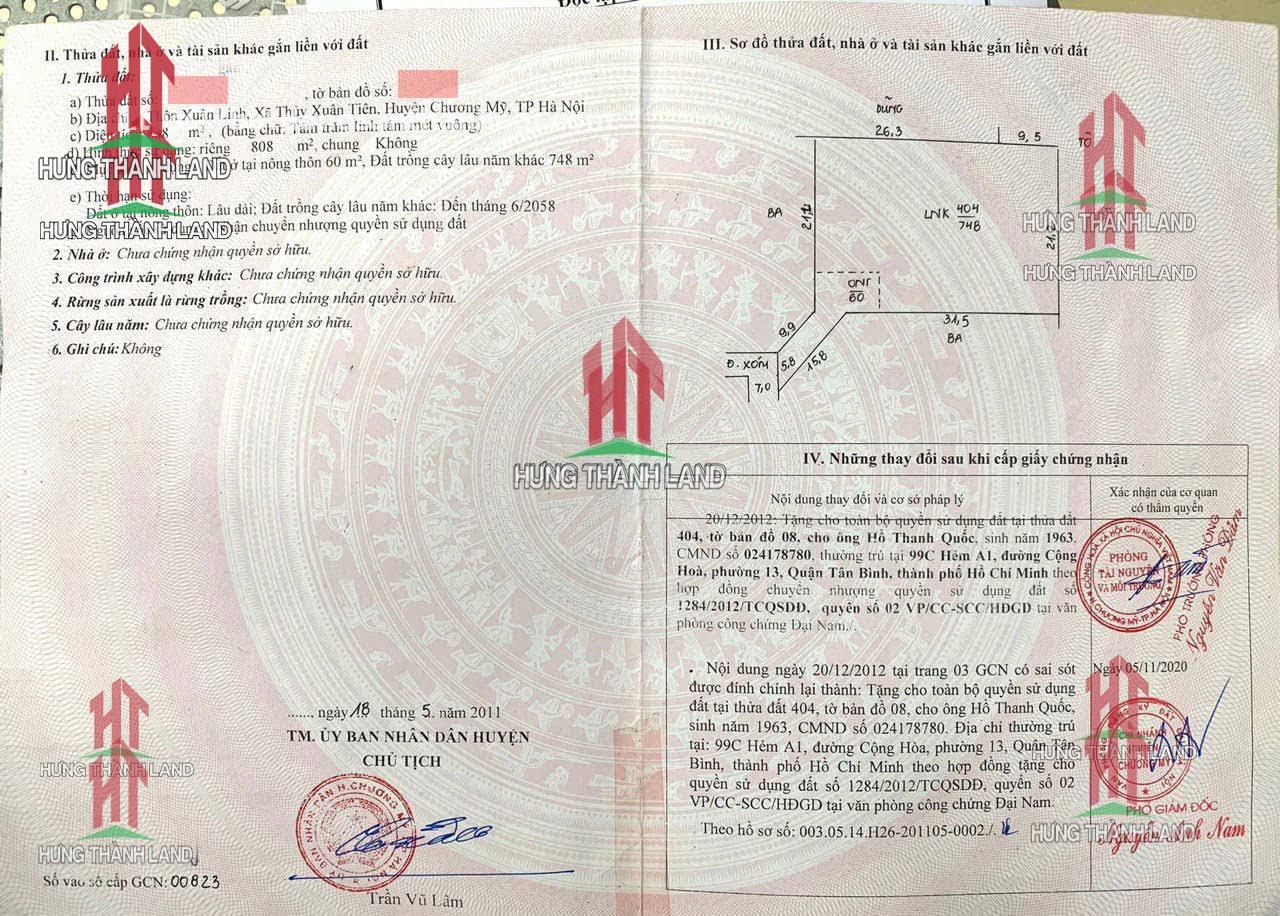 II. Thửa đất, nhà ở và tài sản khác gắn liền với đất
1. Thửa đất:
a) Thửa đất số: , tờ bản đồ số:
b) Địa chỉ: Thôn Xuân Linh, Xã Thủy Xuân Tiên, Huyện Chương Mỹ, TP Hà Nội
c) Diện tích: 808 m², (bằng chữ: Tám trăm linh tám mét vuông)
d) Hình thức sử dụng: riêng 808 m², chung Không
ở tại nông thôn 60 m², Đất trồng cây lâu năm khác 748 m²
e) Thời hạn sử dụng:
Đất ở tại nông thôn: Lâu dài; Đất trồng cây lâu năm khác: Đến tháng 6/2058
nhận chuyển nhượng quyền sử dụng đất
2. Nhà ở: Chưa chứng nhận quyền sở hữu.
3. Công trình xây dựng khác: Chưa chứng nhận quyền sở hữu.
4. Rừng sản xuất là rừng trồng: Chưa chứng nhận quyền sở hữu.
5. Cây lâu năm: Chưa chứng nhận quyền sở hữu.
6. Ghi chú: Không
......., ngày 18 tháng 5. năm 2011
TM. ỦY BAN NHÂN DÂN HUYỆN
CHỦ TỊCH
Trần Vũ Lâm
Số vào sổ cấp GCN: 00823
III. Sơ đồ thửa đất, nhà ở và tài sản khác gắn liền với đất
DŨNG
26,3
9,5
TÔ
BA
21,1
LNK 404
748
21,2
ONT
60
9,9
31,5
BA
Đ. XÓM
5,8
15,8
7,0
IV. Những thay đổi sau khi cấp giấy chứng nhận
Nội dung thay đổi và cơ sở pháp lý
Xác nhận của cơ quan
có thẩm quyền
20/12/2012: Tặng cho toàn bộ quyền sử dụng đất tại thửa đất
404, tờ bản đồ 08, cho ông Hồ Thanh Quốc, sinh năm 1963.
CMND số 024178780, thường trú tại 99C Hẻm A1, đường Cộng
Hoà, phường 13, Quận Tân Bình, thành phố Hồ Chí Minh theo
hợp đồng chuyển nhượng quyền sử dụng đất số
1284/2012/TCQSDĐ, quyển số 02 VP/CC-SCC/HĐGD tại văn
phòng công chứng Đại Nam./.
PHÒNG
TÀI NGUYÊN
VÀ MÔI TRƯỜNG
H.CHƯƠNG MỸ-TP.HÀ NỘI
PHÓ TRƯỞNG PHÒNG
Nguyễn Văn Dân
- Nội dung ngày 20/12/2012 tại trang 03 GCN có sai sót
được đính chính lại thành: Tặng cho toàn bộ quyền sử dụng
đất tại thửa đất 404, tờ bản đồ 08, cho ông Hồ Thanh Quốc,
sinh năm 1963, CMND số 024178780. Địa chỉ thường trú
tại: 99C Hẻm A1, đường Cộng Hòa, phường 13, Quận Tân
Bình, thành phố Hồ Chí Minh theo hợp đồng tặng cho
quyền sử dụng đất số 1284/2012/TCQSDĐ, quyển số 02
VP/CC-SCC/HĐGD tại văn phòng công chứng Đại Nam.
Theo hồ sơ số: 003.05.14.H26-201105-0002./.
Ngày 05/11/2020
CHI NHÁNH
CHƯƠNG MỸ
PHÓ GIÁM ĐỐC
Nguyễn Anh Nam
HƯNG THÀNH LAND
HƯNG THÀNH LAND
HƯNG THÀNH LAND
HƯNG THÀNH LAND
HƯNG THÀNH LAND
HƯNG THÀNH LAND
HƯNG THÀNH LAND
HƯNG THÀNH LAND
HƯNG THÀNH LAND